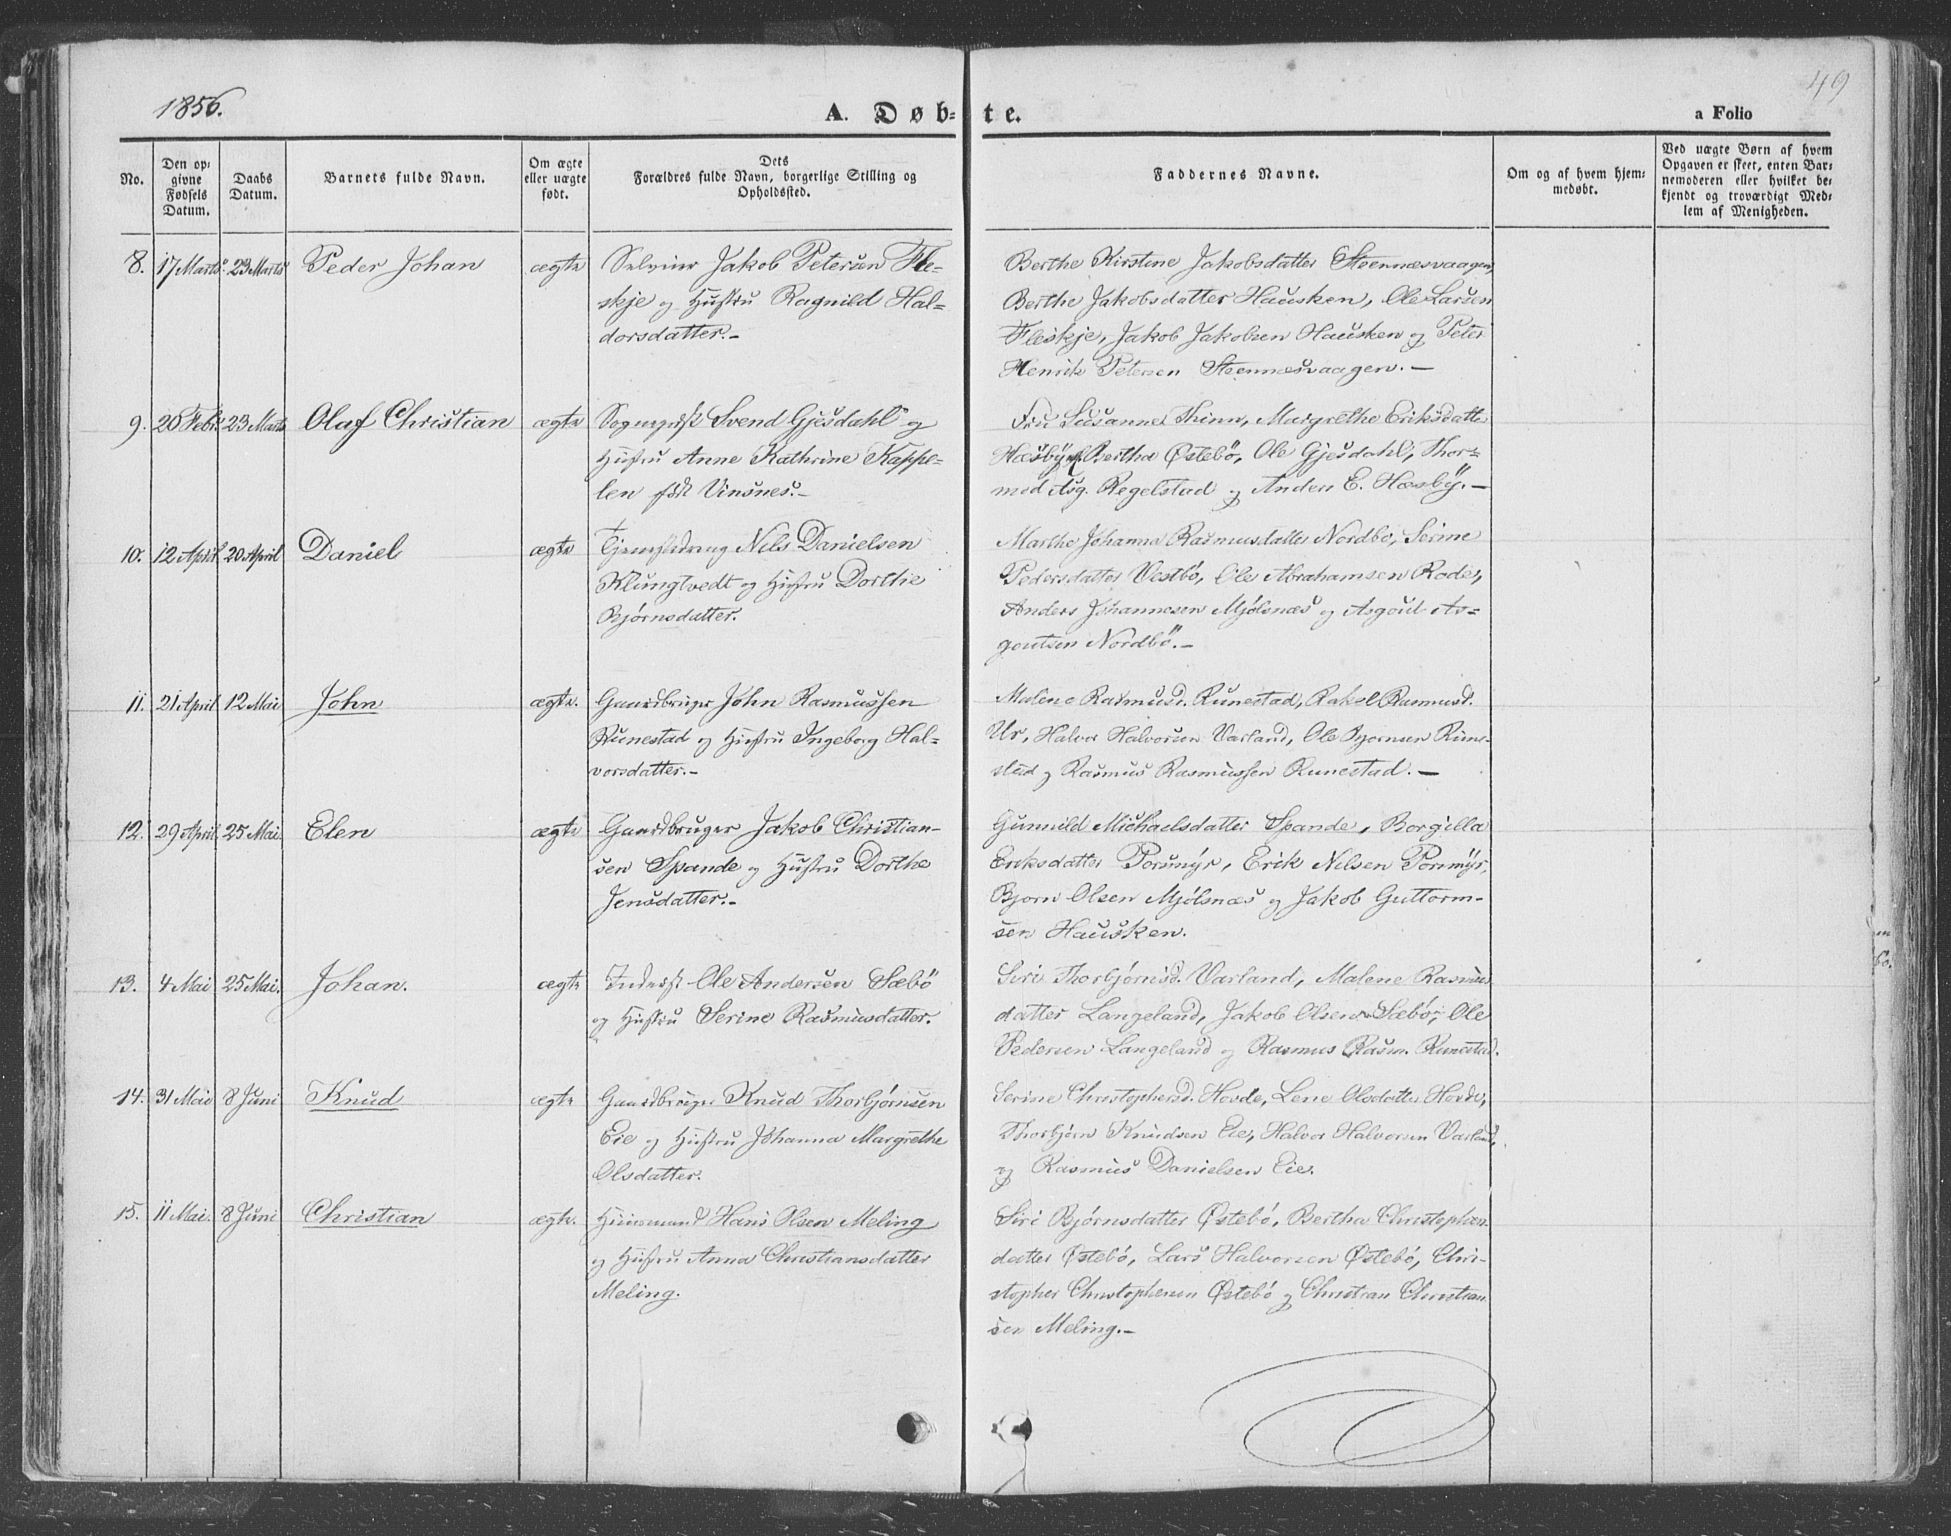 1856.
A. Døb-
te.
49
a Folio
No.
Den op-
givne
Fødsels
Datum.
Daabs
Datum.
Barnets fulde Navn.
Om ægte
eller uægte
født.
Dets
Forældres fulde Navn, borgerlige Stilling og
Opholdssted.
Faddernes Navne.
Om og af hvem hjem-
medøbt.
Ved uægte Børn af hvem
Opgaven er skeet, enten Bar-
nemoderen eller hvilket be-
kjendt og troværdigt Med-
lem af Menigheden.
8. 17 Marts 23 Marts Peder Johan ægte Selveier Jakob Petersen Fle-
skje og Hustru Ragnild Hal-
dorsdatter.-
Berthe Kirstine Jakobsdatter Steennæsvaagen,
Berthe Jakobsdatter Hausken, Ole Larsen
Fleskje, Jakob Jakobsen Hausken og Peter
Henrik Petersen Steennæsvaagen.-
9. 26 Febr. 23 Marts Olaf Christian ægte Sognepræst Svend Gjesdahl og
Hustru Anne Kathrine Kappe-
len født Vinsnes.-
Fru Susanne Thinn, Margrethe Eriksdatter
Hæsby, Bertha Østebö, Ole Gjesdahl, Thor-
mod Asg. Regelstad og Anders E. Hæsby.-
10. 12 April 20 April Daniel ægte Tjenestedreng Nils Danielsen
Klungtvedt og Hustru Dorthe
Bjørnsdatter.
Marthe Johanna Rasmusdatter Nordbö, Serine
Pedersdatter Vestbö, Ole Abrahamsen Rode,
Anders Johannesen Mjölsnæs og Asgout As-
goutsen Nordbö.-
11. 21 April 12 Mai John ægte. Gaardbruger John Rasmussen
Runestad og Hustru Ingeborg Hal-
vorsdatter.-
Malene Rasmusd. Runestad, Rakel Rasmusd.
Ur, Halvor Halvorsen Varland, Ole Bjørnsen Rune-
stad og Rasmus Rasmussen Runestad.-
12. 29 April. 25 Mai. Elen ægte Gaardbruger Jakob Christian-
sen Spande og Hustru Dorthe
Jensdatter.-
Gunnild Michaelsdatter Spande, Borgilla
Eriksdatter Porsmyr, Erik Nilsen Porsmyr,
Bjorn Olsen Mjølsnæs og Jakob Guttorm-
sen Hausken.
13. 4 Mai 25 Mai. Johan. ægte Inderst Ole Andersen Sæbö
og Hustru Serine Rasmusdatter.
Siri Thorbjørnsd. Varland, Malene Rasmus
datter Langeland, Jakob Olsen Sæbö, Ole
Pedersen Langeland og Rasmus Rasm. Runestad.
14. 31 Mai 8 Juni Knud ægte Gaardbruger Knud Thorbjørnsen
Eie og Hustru Johanna Margrethe
Olsdatter.
Serine Christophersd. Hovde, Lene Olsdatter Hovde,
Thorbjørn Knudsen Eie, Halvor Halvorsen Varland,
og Rasmus Danielsen Eie.
15. 11 Mai. 8 Juni Christian ægte. Huusmand Hans Olsen Meling
og Hustru Anna Christiansdatter
Meling.
Siri Bjørnsdatter Østebö, Bertha Christophers
datter Østebö, Lars Halvorsen Østebö, Chri-
stopher Christophersen Østebö og Christian Christian
sen Meling.-